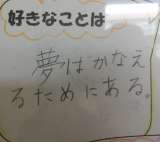 好きなことは
夢はかなえ
るためにある。